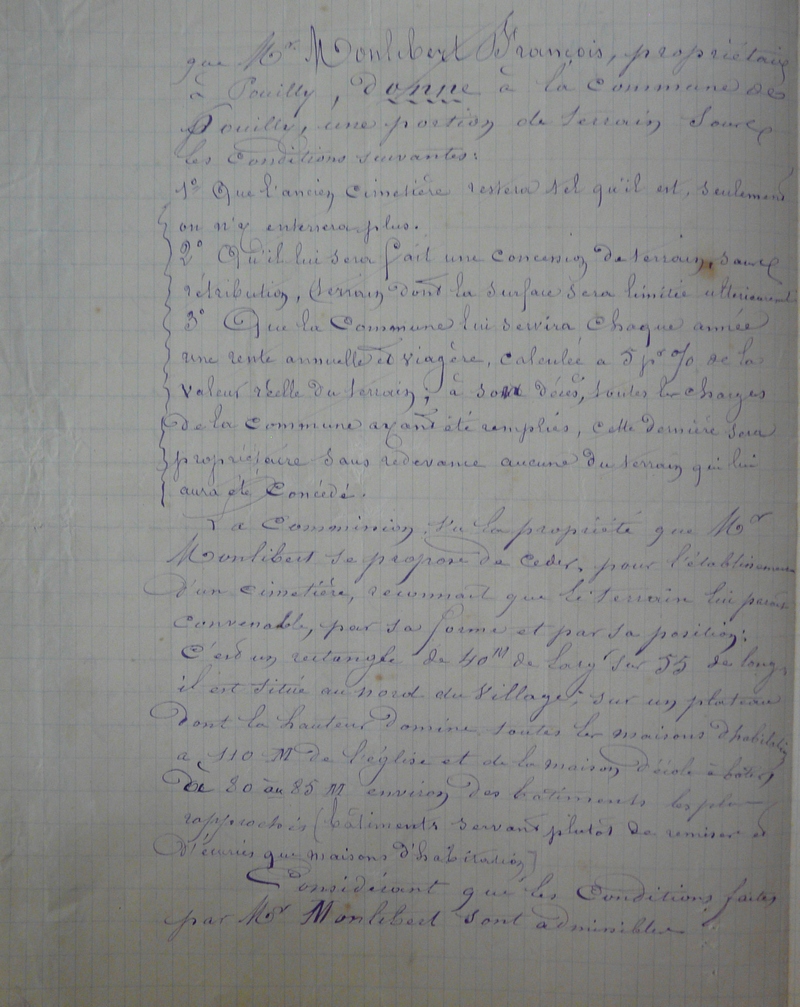 que Mr Monlibert François, propriétaire
à Pouilly, donne à la Commune de
Pouilly, une portion de terrain sous
les conditions suivantes:
1° Que l'ancien cimetière restera tel qu'il est, seulement
on n'y enterrera plus.
2° Qu'il lui sera fait une concession de terrain, sans
rétribution, (terrain dont la surface sera limitée ultérieurement
3° Que la Commune lui servira chaque année
une rente annuelle et viagère, calculée a 5 pr % de la
valeur réelle du terrain; à son décès, toutes les charges
de la Commune ayant été remplies, cette dernière sera
propriétaire sans redevance aucune du terrain qui lui
aura été concédé.
La Commission vu la propriété que Mr
Monlibert se propose de céder, pour l'établissement
d'un cimetière, reconnait que le terrain lui parait
convenable, par sa forme et par sa position;
C'est un rectangle de 40m de large sur 55 de long,
il est situé au nord du village, sur un plateau
dont la hauteur domine toutes les maisons d'habitation
a 110 M de l'église et de la maison d'école à bâtir
De 80 à 85 M environ des bâtiments les plus
rapprochés (bâtiments servant plutôt de remises et
d'écuries que maisons d'habitation)
Considérant que les Conditions faites
par Mr Monlibert sont admissibles